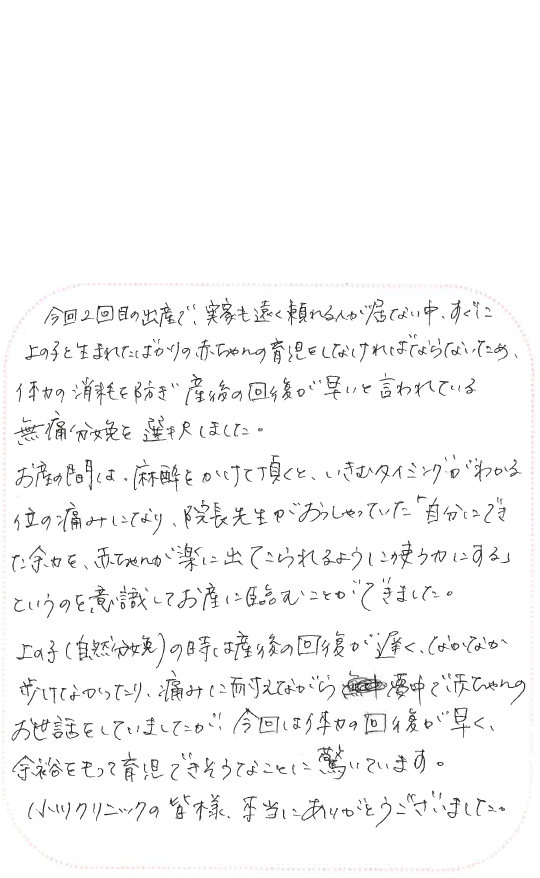 今回2回目の出産で、実家も遠く頼れる人が居ない中、すぐに
上の子と生まれたばかりの赤ちゃんの育児をしなければならないため、
体力の消耗を防ぎ産後の回復が早いと言われている
無痛分娩を選択しました。
お産の間は、麻酔をかけて頂くと、いきむタイミングがわかる
位の痛みになり、院長先生がおっしゃっていた「自分にでき
た余力を、赤ちゃんが楽に出てこられるように使う力にする」
というのを意識してお産に臨むことができました。
上の子(自然分娩)の時は産後の回復が遅く、なかなか
歩けなかったり、痛みに耐えながら夢中で赤ちゃんの
お世話をしていましたが、今回は体力の回復が早く、
余裕をもって育児できそうなことに驚いています。
小川クリニックの皆様、本当にありがとうございました。